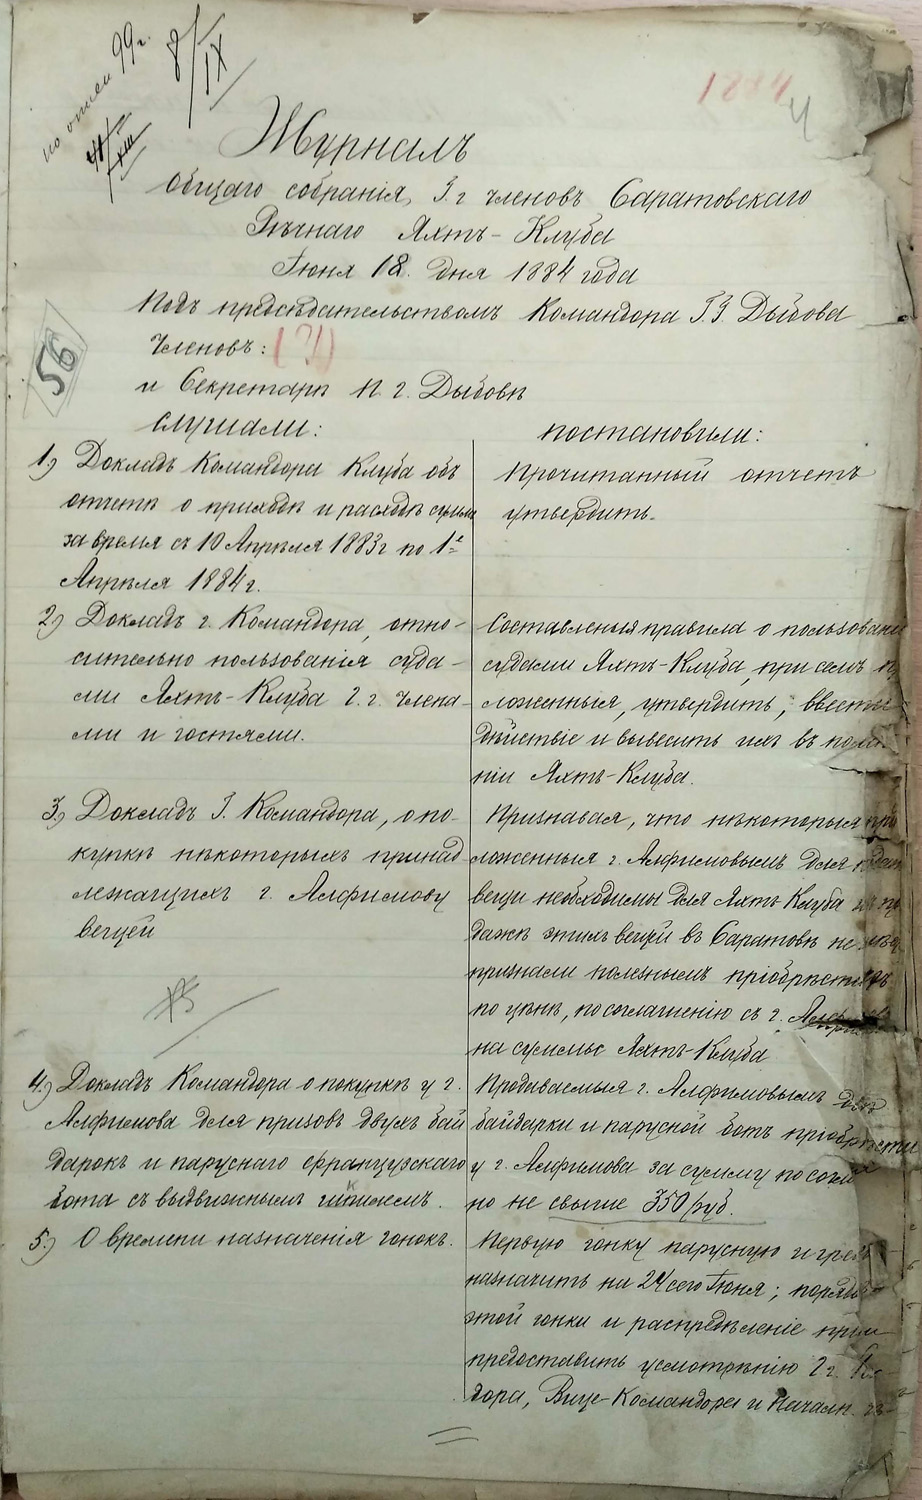 по описи 99 г.
8/IX
1884
4
Журналъ
Общаго собранія, г.г членовъ Саратовскаго
Рѣчнаго Яхтъ-Клуба
Іюня 18 дня 1884 года
Подъ предсѣдательствомъ Командора Дыбова
Членовъ: (?)
и Секретаря П. Г. Дыбовъ
56
слушали:
1) Докладъ Командора Клуба объ
отчетѣ о приходѣ и расходѣ суммъ
за время съ 10 Апрѣля 1883 г по 1е
Апрѣля 1884 г.
2) Докладъ г. Командора, отно-
сительно пользованія суда-
ми Яхтъ-Клуба г.г. члена-
ми и гостями.
3) Докладъ Г. Командора, о по-
купкѣ нѣкоторыхъ принад-
лежащихъ г. Алфимову
вещей
4.) Докладъ Командора о покупкѣ у г.
Алфимова для призовъ двухъ бай
дарокъ и паруснаго французскаго
бота съ выдвижнымъ килемъ.
5.) О времени назначенія гонокъ.
постановили:
Прочитанный отчетъ
утвердить.
Составленыя правила о пользовани
судами Яхтъ-Клуба, при семъ
ложенныя, утвердить, ввести
дѣйствіе и вывесить ихъ въ
ніи Яхтъ-Клуба.
Признавая, что нѣкоторыя
ложенныя г. Алфимовымъ для
вещи необходимы для Яхтъ Клуба
дажѣ этихъ вещей въ Саратовѣ не
признали полезнымъ пріобрѣсти
по цѣнѣ, по соглашенію съ г.
на суммы Яхтъ-Клуба
Продаваемыя г. Алфимовымъ двѣ
байдарки и парусной ботъ пріобрѣсти
у г. Алфимова за сумму по
но не свыше 350 руб.
Первую гонку парусную и
назначить на 24 сего Іюня;
этой гонки и распредѣленіе
предоставить усмотрѣнію г.г.
дора, Вице-Командора и Начальн.